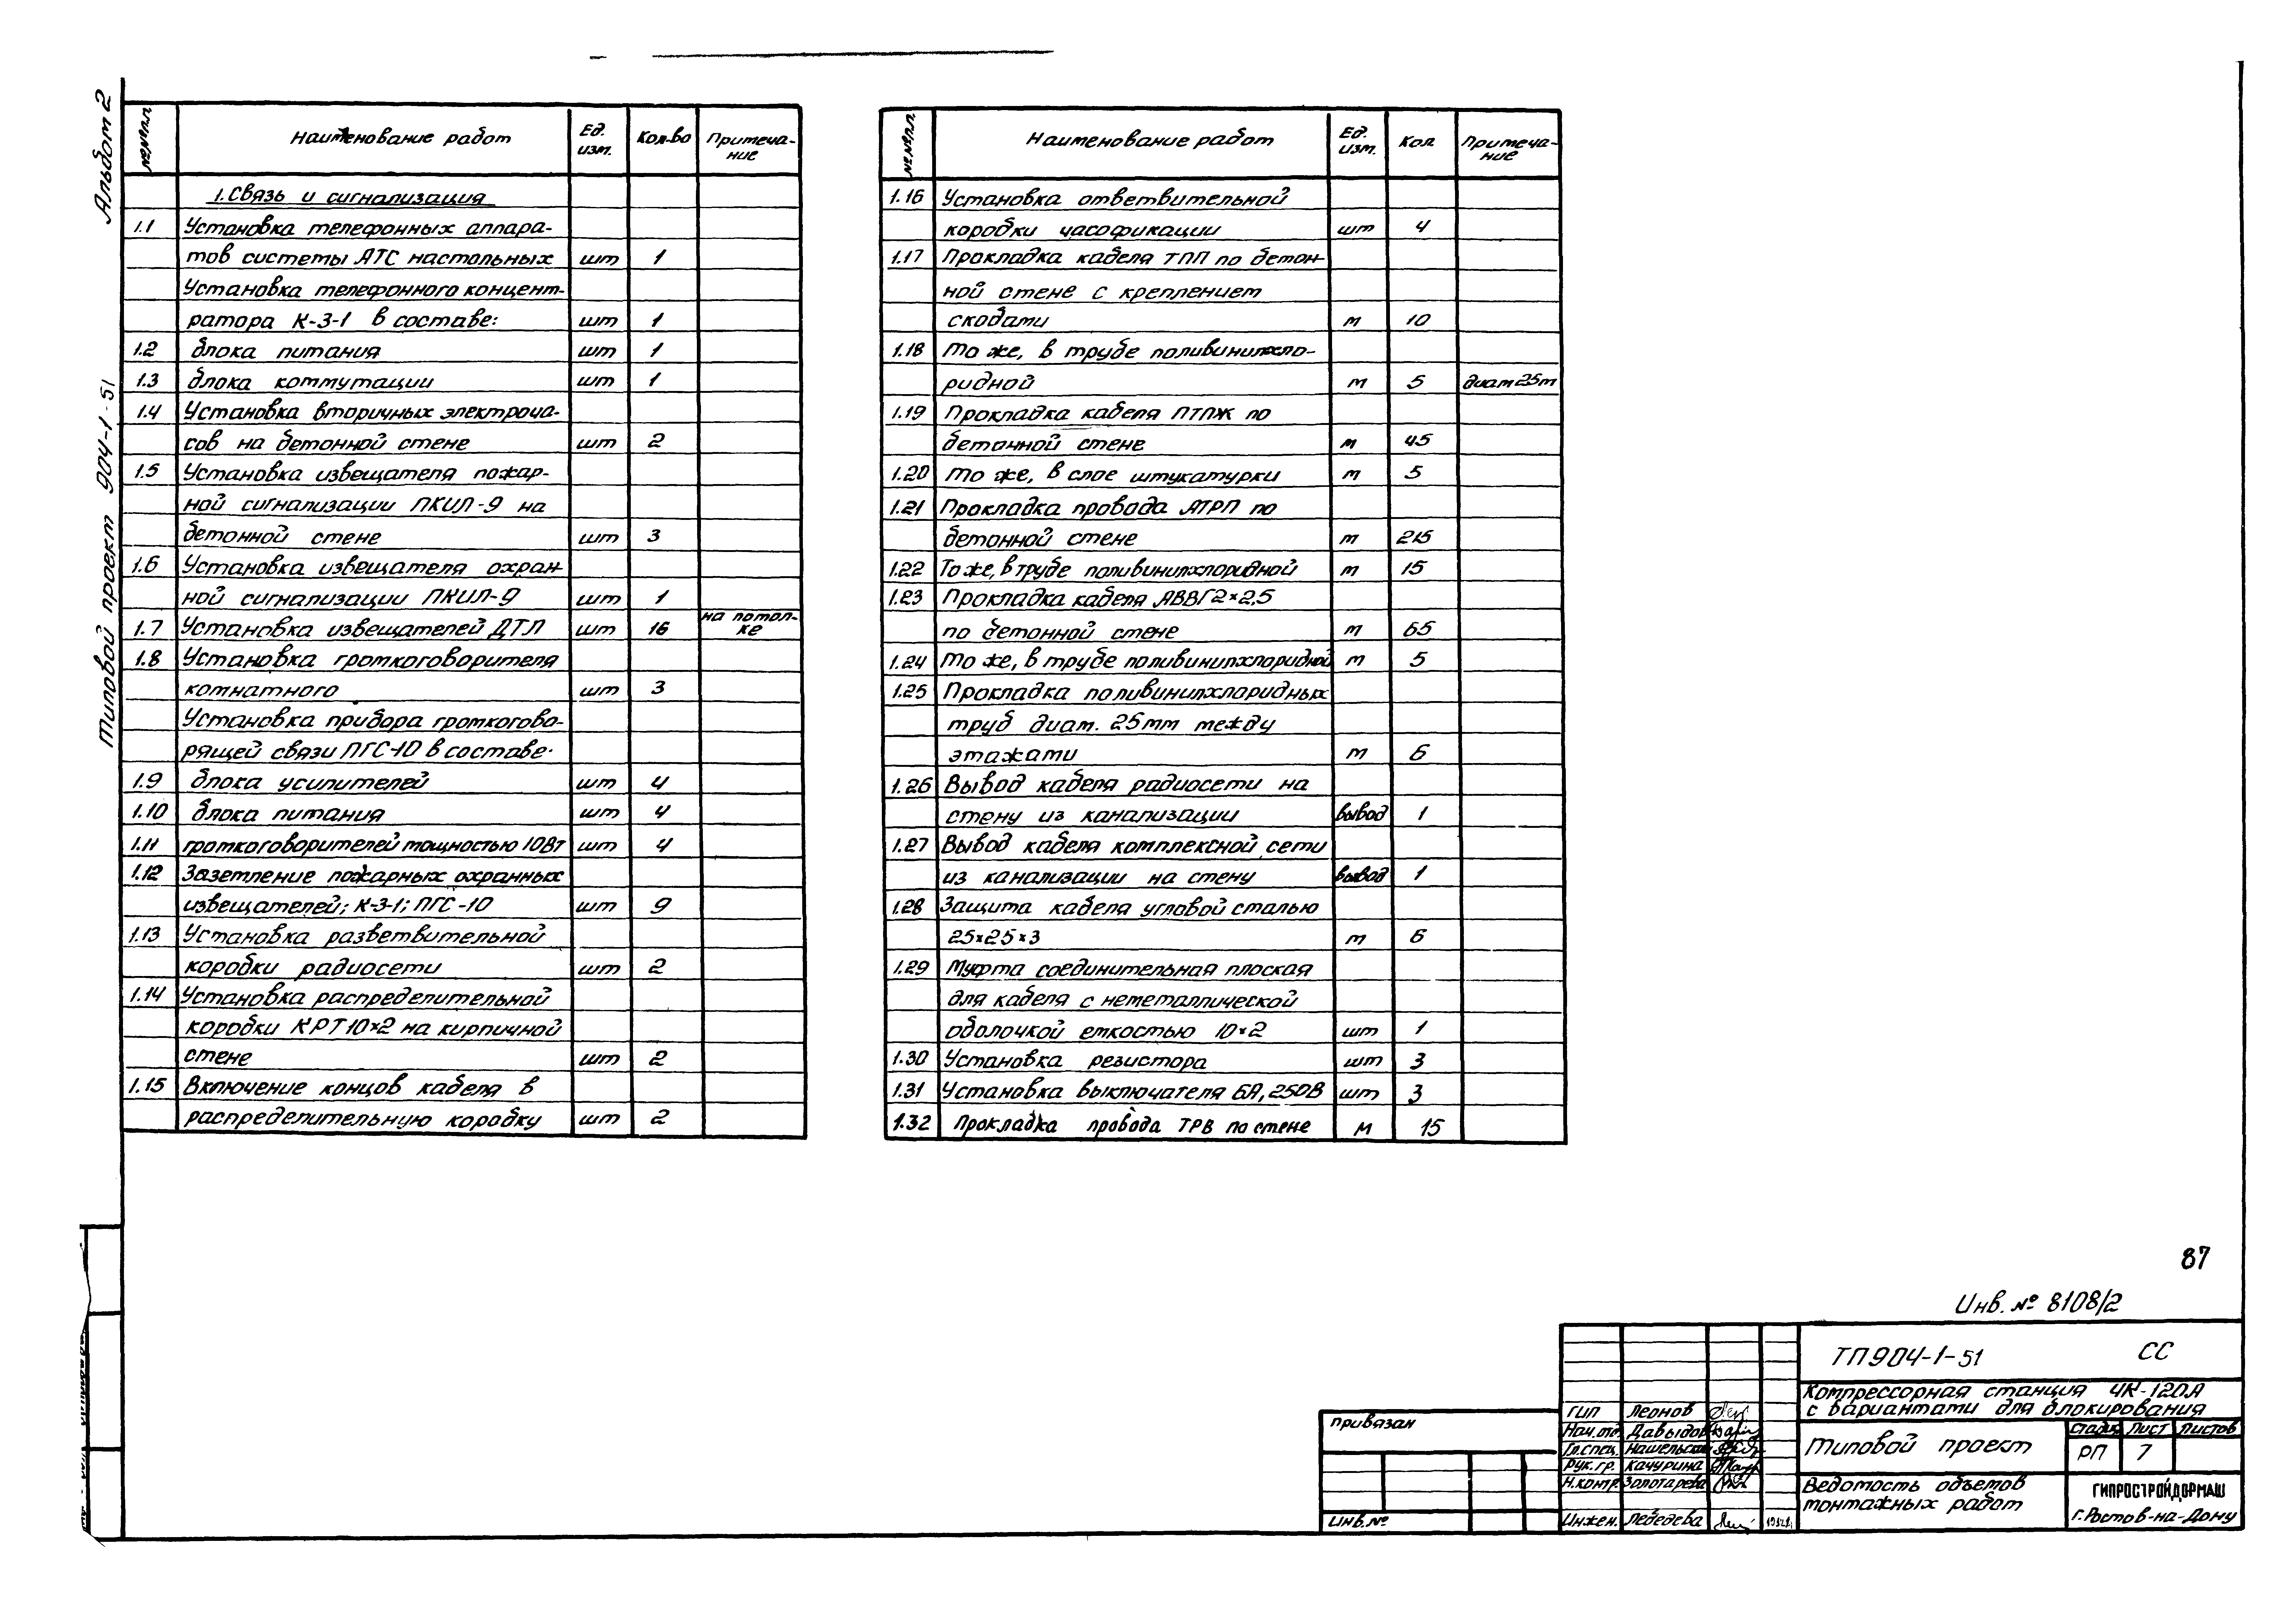 Альбом 2
Типовой проект 904-1-51
№№п.п.
Наименование работ
Ед. изм.
Кол-во
Примеча-
ние
1. Связь и сигнализация
1.1 Установка телефонных аппара-
тов системы АТС настольных шт 1
Установка телефонного концент-
ратора К-3-1 в составе: шт 1
1.2 блока питания шт 1
1.3 блока коммутации шт 1
1.4 Установка вторичных электроча-
сов на бетонной стене шт 2
1.5 Установка извещателя пожар-
ной сигнализации ПКИЛ-9 на
бетонной стене шт 3
1.6 Установка извещателя охран-
ной сигнализации ПКИЛ-9 шт 1
1.7 Установка извещателей ДТЛ шт 16 на потол-
ке
1.8 Установка громкоговорителя
комнатного шт 3
Установка прибора громкогово-
рящей связи ПГС-10 в составе:
1.9 блока усилителей шт 4
1.10 блока питания шт 4
1.11 громкоговорителей мощностью 10Вт шт 4
1.12 Заземление пожарных охранных
извещателей; К-3-1; ПГС-10 шт 9
1.13 Установка разветвительной
коробки радиосети шт 2
1.14 Установка распределительной
коробки КРТ10×2 на кирпичной
стене шт 2
1.15 Включение концов кабеля в
распределительную коробку шт 2
№№п.п.
Наименование работ
Ед. изм.
Кол
Примеча-
ние
1.16 Установка ответвительной
коробки часофикации шт 4
1.17 Прокладка кабеля ТПП по бетон-
ной стене с креплением
скобами м 10
1.18 То же, в трубе поливинилхло-
ридной м 5 диам 25м
1.19 Прокладка кабеля ПТПЖ по
бетонной стене м 45
1.20 То же, в слое штукатурки м 5
1.21 Прокладка провода АТРП по
бетонной стене м 215
1.22 То же, в трубе поливинилхлоридной м 15
1.23 Прокладка кабеля АВВГ2×2,5
по бетонной стене м 65
1.24 То же, в трубе поливинилхлоридной м 5
1.25 Прокладка поливинилхлоридных
труб диам. 25мм между
этажами м 6
1.26 Вывод кабеля радиосети на
стену из канализации вывод 1
1.27 Вывод кабеля комплексной сети
из канализации на стену вывод 1
1.28 Защита кабеля угловой сталью
25×25×3 м 6
1.29 Муфта соединительная плоская
для кабеля с неметаллической
оболочкой емкостью 10×2 шт 1
1.30 Установка резистора шт 3
1.31 Установка выключателя 6А, 250В шт 3
1.32 Прокладка провода ТРВ по стене м 15
87
Инв. № 8108/2
ТП904-1-51 СС
Компрессорная станция 4К-120А
с вариантами для блокирования
Типовой проект
Стадия Лист Листов
РП 7
Ведомость объемов
монтажных работ
ГИПРОСТРОЙДОРМАШ
г. Ростов-на-Дону
ГИП Леонов
Нач. отд. Давыдов
Гл.спец.
Рук. гр. Качурина
Н.контр. Золотарева
Инжен. Лебедева
Привязан
Инв.№